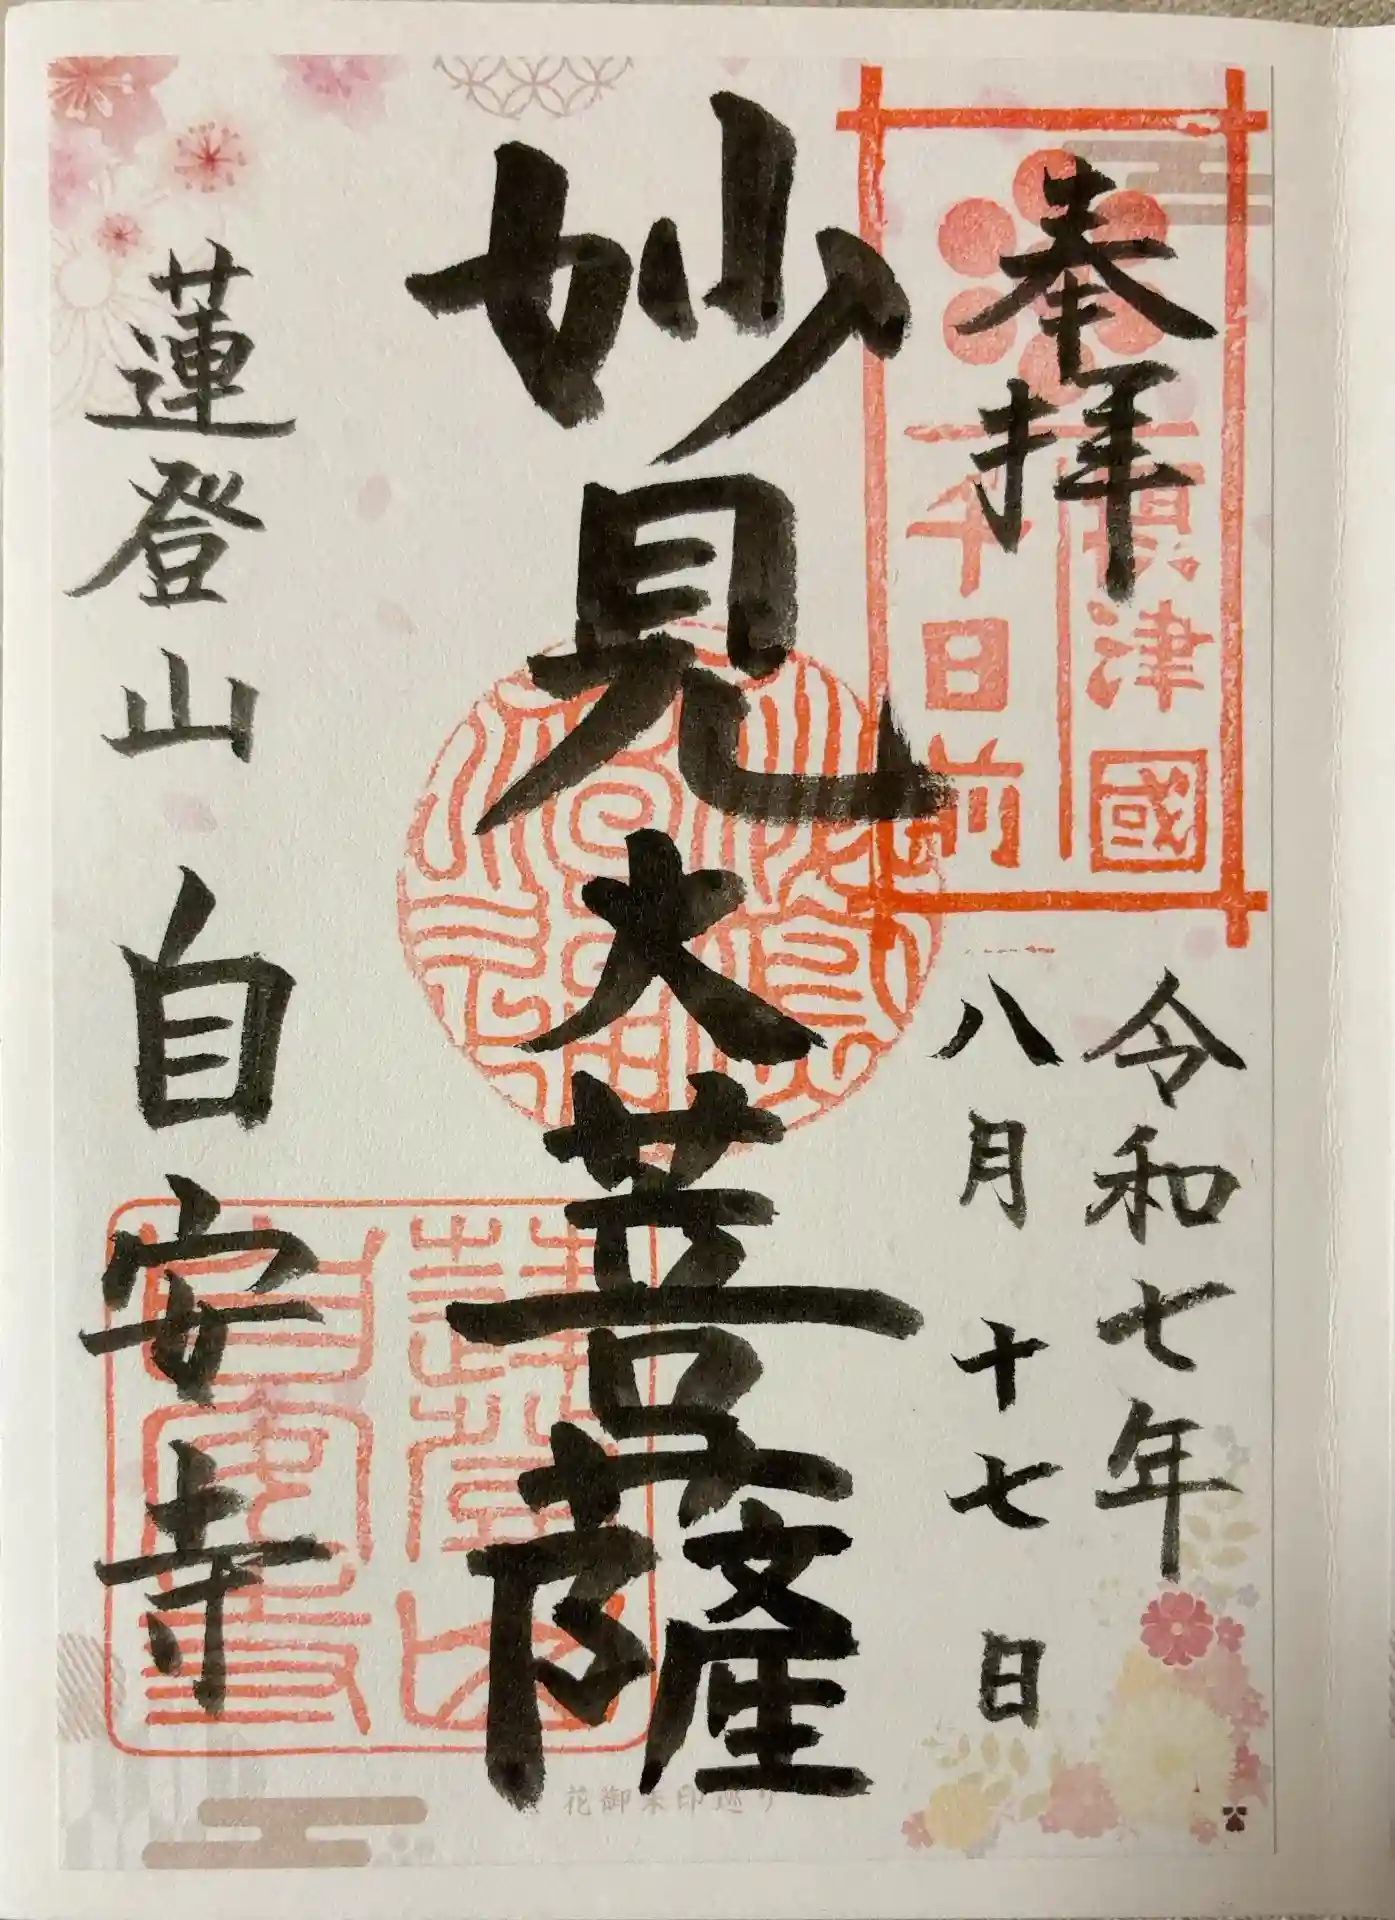 奉拝
摂津國
千日前
令和七年
八月十七日
妙見大菩薩
蓮登山 自安寺
花御朱印巡り